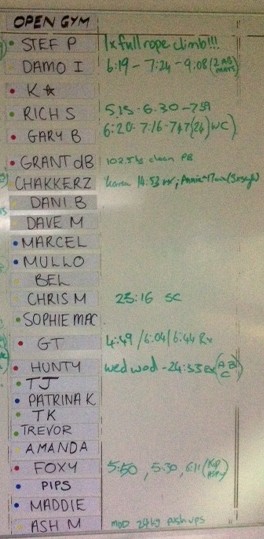 OPEN GYM
STEF P 1x full rope climb!!!
DAMO I 6:19 - 7:24 - 9:08
K☆
RICH S 5:15 - 6:30 - 7:59
GARY B 6:20 - 7:16 - 7:47 (24) WC
GRANT dB clean PB
CHAKKERZ
DANI B
DAVE M
MARCEL
MULLO
BEL
CHRIS M 25:16 SC
SOPHIE MAC
GT 4:49 / 6:04 / 6:44 Rx
HUNTY wed wod - 24:33 Rx
TJ
PATRINA K
TK
TREVOR
AMANDA
FOXY 5:50, 5:30, 6:11
PIPS
MADDIE
ASH M push ups